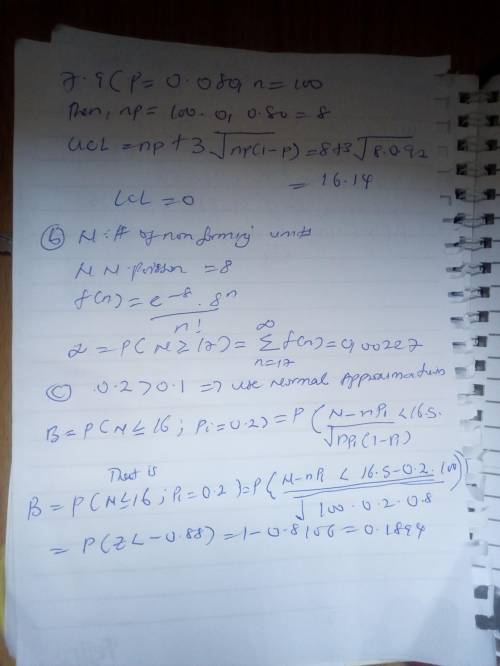 7.9 (P= 0.080, n=100
Then, np= 100. 0, 0.80 = 8
UCL = np + 3 √np(1-p) = 8+3√8.0.92
= 16.14
LCL = 0
(b) N: # of non forming units
N N poisson = 8
f(n) = e^-8 . 8^n
n!
α = P(N ≥ 17) = ∞ Σ n=17 f(n) = 0,00227
(c) 0.2 > 0.1 => use normal Approximation
B = P(N ≤ 16 ; Pi = 0.2) = P( N-nPi < 16.5-
√nPi(1-Pi)
That is
B = P(N≤16 ; Pi=0.2) = P{ N-nPi < 16.5-0.2.100 )}
√100.0.2.0.8
= P(Z < -0.88) = 1-0.8106 = 0.1894